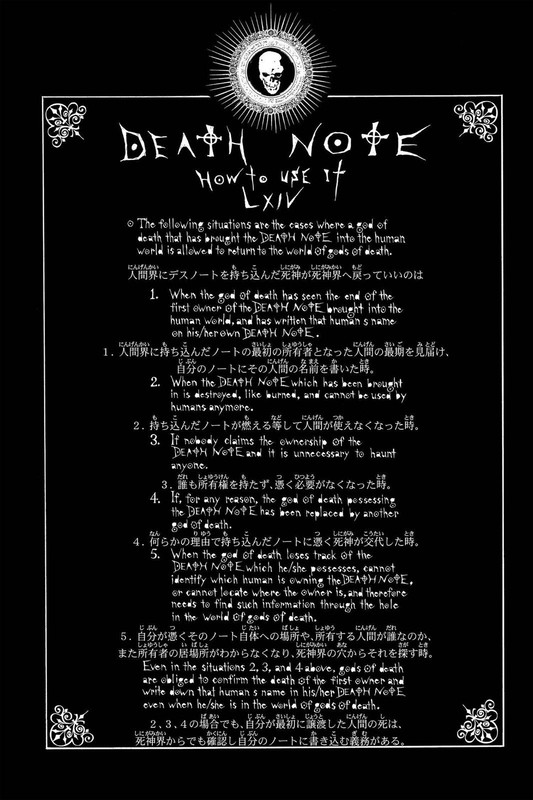 DEATH NOTE
HOW TO USE IT
LXIV
The following situations are the cases where a god of
death that has brought the DEATH NOTE into the human
world is allowed to return to the world of gods of death.
人間界にデスノートを持ち込んだ死神が死神界へ戻っていいのは
1. When the god of death has seen the end of the
first owner of the DEATH NOTE brought into the
human world, and has written that human's name
on his/her own DEATH NOTE.
1. 人間界に持ち込んだノートの最初の所有者となった人間の最期を見届け、
自分のノートにその人間の名前を書いた時。
2. When the DEATH NOTE which has been brought
in is destroyed, like burned, and cannot be used by
humans anymore.
2. 持ち込んだノートが燃える等して人間が使えなくなった時。
3. If nobody claims the ownership of the
DEATH NOTE and it is unnecessary to haunt
anyone.
3. 誰も所有権を持たず、憑く必要がなくなった時。
4. If, for any reason, the god of death possessing
the DEATH NOTE has been replaced by another
god of death.
4. 何らかの理由で持ち込んだノートに憑く死神が交代した時。
5. When the god of death loses track of the
DEATH NOTE which he/she possesses, cannot
identify which human is owning the DEATH NOTE,
or cannot locate where the owner is, and therefore
needs to find such information through the hole
in the world of gods of death.
5. 自分が憑くそのノート自体への場所や、所有する人間が誰なのか、
また所有者の居場所がわからなくなり、死神界の穴からそれを探す時。
Even in the situations 2, 3, and 4 above, gods of death
are obliged to confirm the death of the first owner and
write down that human's name in his/her DEATH NOTE
even when he/she is in the world of gods of death.
2、3、4の場合でも、自分が最初に譲渡した人間の死は、
死神界からでも確認し自分のノートに書き込む義務がある。